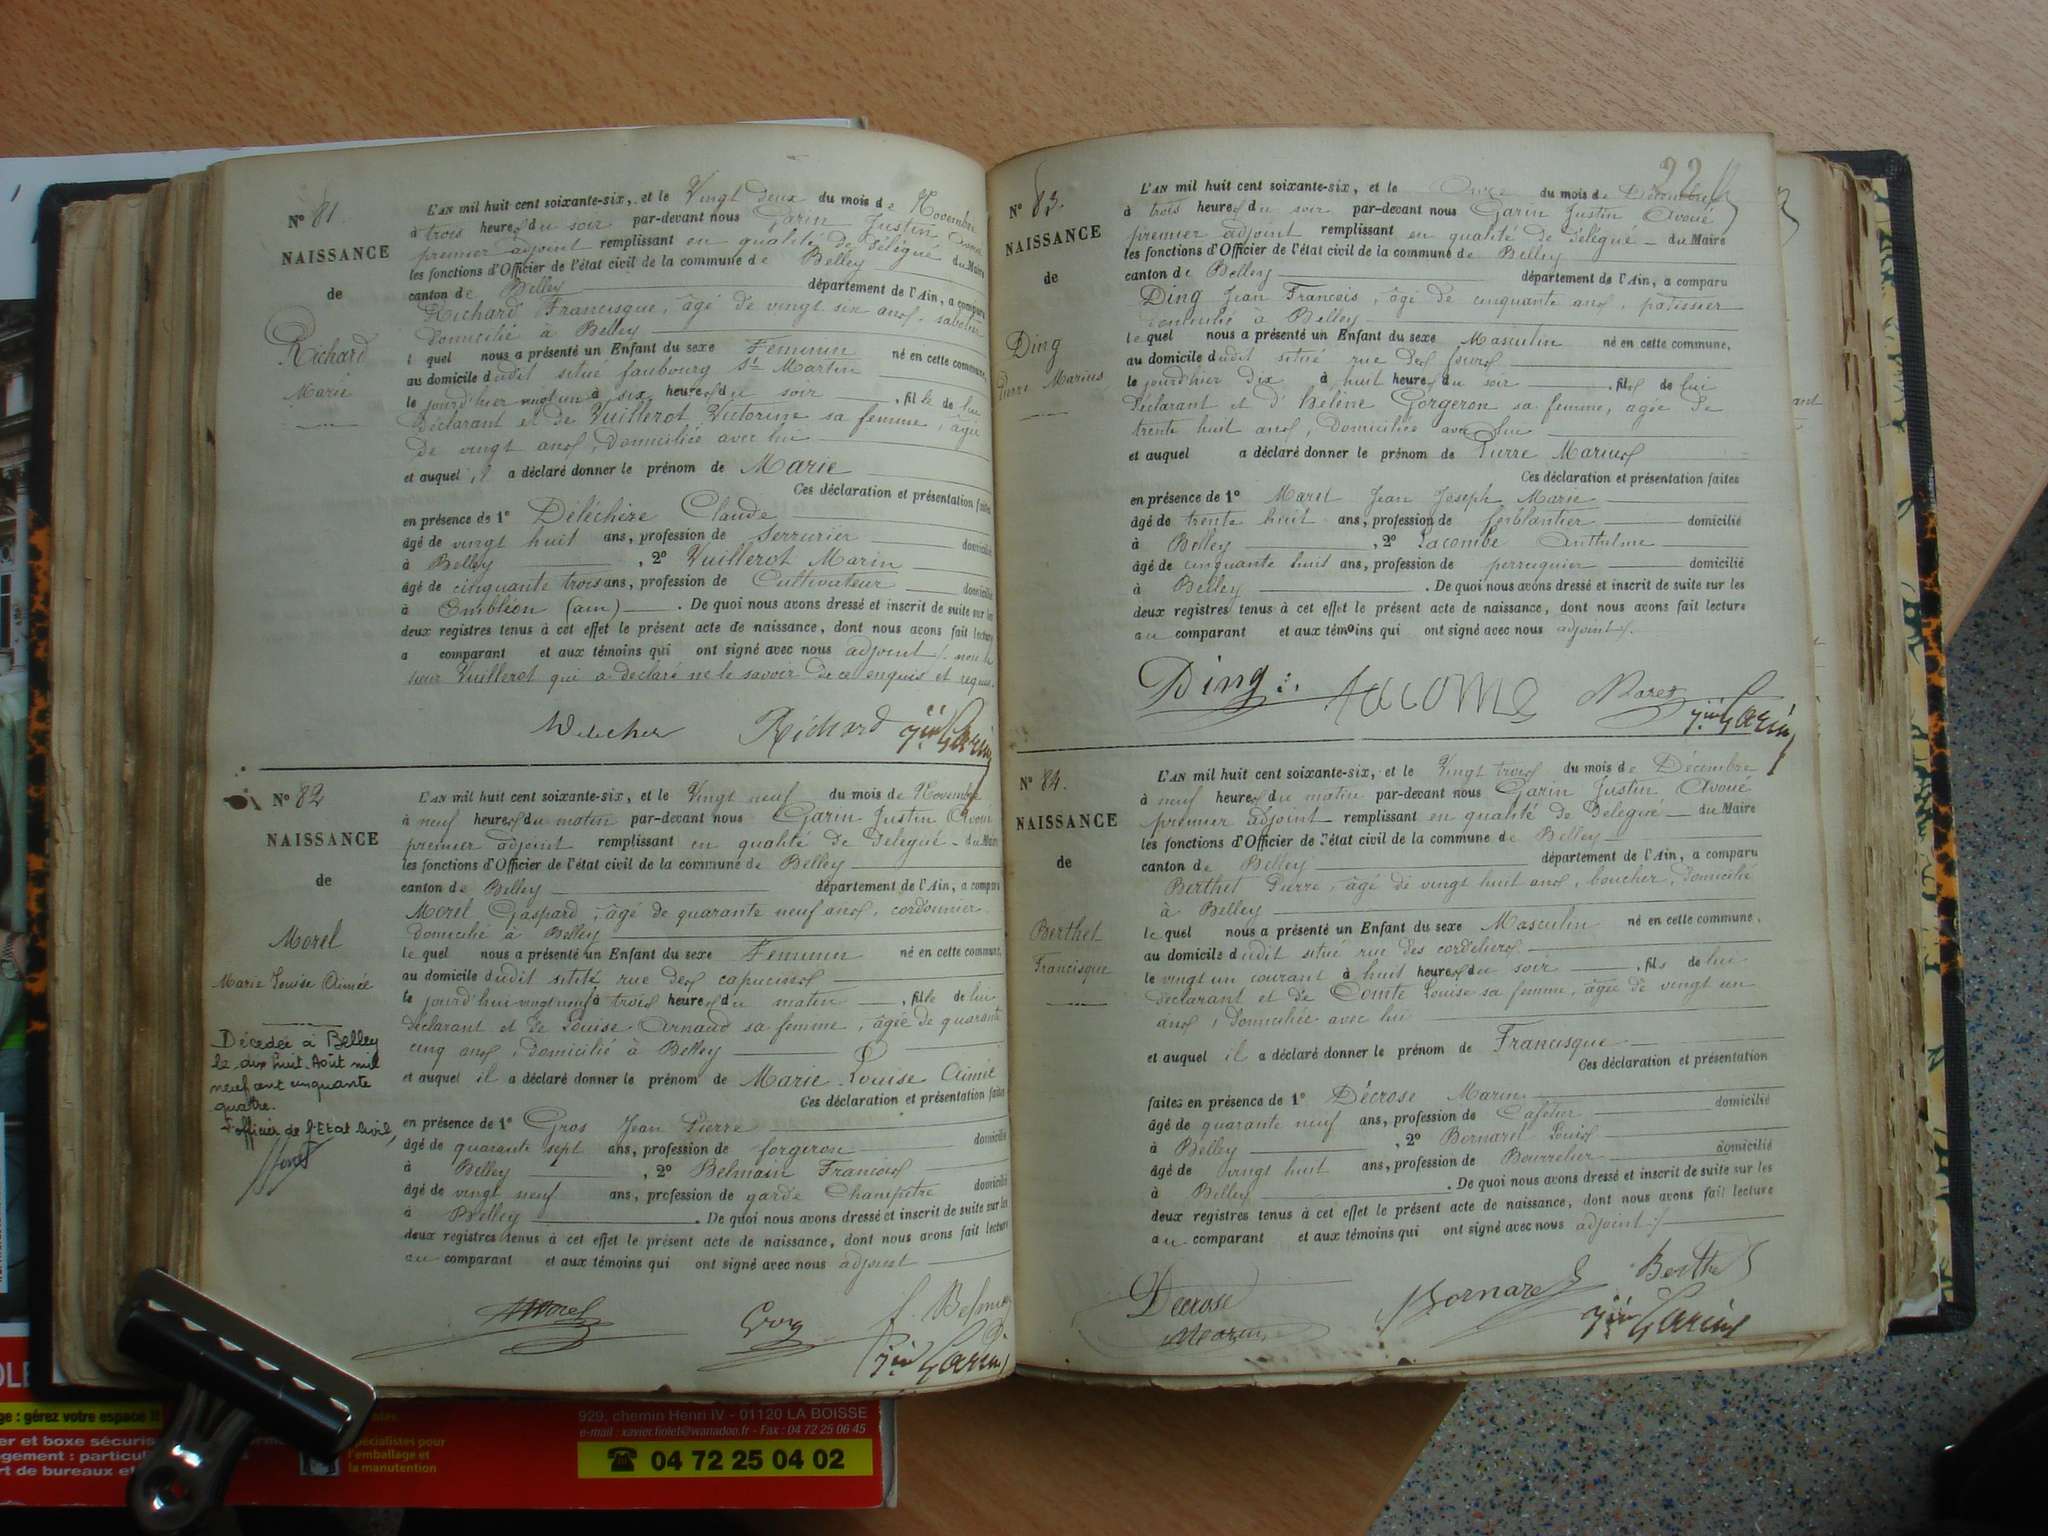 Nº 81.
NAISSANCE
de
Richard
Marie
L'AN mil huit cent soixante-six, et le Vingt deux du mois de Novembre
à trois heures du soir par-devant nous Garin Justin Avoué
premier adjoint remplissant en qualité de Délégué du Maire
les fonctions d'Officier de l'état civil de la commune de Belley
canton de Belley département de l'Ain, a comparu
Richard Francisque, âgé de vingt six ans, sabotier
domicilié à Belley
l quel nous a présenté un Enfant du sexe Féminin né en cette commune,
au domicile dudit situé faubourg St Martin
le jourd'hier vingt un à six heures du soir, fille de lui
déclarant et de Vuillerot Victorine sa femme, âgée
de vingt ans, domiciliée avec lui
et auquel il a déclaré donner le prénom de Marie
Ces déclaration et présentation faites
en présence de 1º Déléchèze Claude
âgé de vingt huit ans, profession de Serrurier domicilié
à Belley, 2º Vuillerot Marin
âgé de cinquante trois ans, profession de Cultivateur domicilié
à Embléon (ain). De quoi nous avons dressé et inscrit de suite sur les
deux registres tenus à cet effet le présent acte de naissance, dont nous avons fait lecture
a comparant et aux témoins qui ont signé avec nous adjoint non le
sieur Vuillerot qui a déclaré ne le savoir de ce enquis et requis.
Richard Jin Garin
Nº 82
NAISSANCE
de
Morel
Marie Louise Aimée
Décédée à Belley
le dix huit Août mil
neuf cent cinquante
quatre.
L'officier de l'Etat Civil,
L'AN mil huit cent soixante-six, et le Vingt neuf du mois de Novembre
à neuf heures du matin par-devant nous Garin Justin Avoué
premier adjoint remplissant en qualité de Délégué du Maire
les fonctions d'Officier de l'état civil de la commune de Belley
canton de Belley département de l'Ain, a comparu
Morel Gaspard, âgé de quarante neuf ans, cordonnier
domicilié à Belley
le quel nous a présenté un Enfant du sexe Féminin né en cette commune,
au domicile dudit situé rue des capucins
le jourd'hui vingt neuf à trois heures du matin, fille de lui
déclarant et de Louise Arnaud sa femme, âgée de quarante
cinq ans, domicilié à Belley
et auquel il a déclaré donner le prénom de Marie Louise Aimée
Ces déclaration et présentation faites
en présence de 1º Gros Jean Pierre
âgé de quarante sept ans, profession de forgeron domicilié
à Belley, 2º Belmain François
âgé de vingt neuf ans, profession de garde Champêtre domicilié
à Belley. De quoi nous avons dressé et inscrit de suite sur les
deux registres tenus à cet effet le présent acte de naissance, dont nous avons fait lecture
au comparant et aux témoins qui ont signé avec nous adjoint
Morel Gros f. Belmain
Jin Garin
Nº 83.
NAISSANCE
de
Ding
Pierre Marius
L'AN mil huit cent soixante-six, et le Onze du mois de Décembre
à trois heures du soir par-devant nous Garin Justin Avoué
premier adjoint remplissant en qualité de Délégué du Maire
les fonctions d'Officier de l'état civil de la commune de Belley
canton de Belley département de l'Ain, a comparu
Ding Jean François, âgé de cinquante ans, patissier
domicilié à Belley
le quel nous a présenté un Enfant du sexe Masculin né en cette commune,
au domicile dudit situé rue des
le jourd'hier dix à huit heures du soir, fils de lui
déclarant et d'Hélène Gorgeron sa femme, âgée de
trente huit ans, domiciliée avec lui
et auquel a déclaré donner le prénom de Pierre Marius
Ces déclaration et présentation faites
en présence de 1º Maret Jean Joseph Marie
âgé de trente huit ans, profession de ferblantier domicilié
à Belley, 2º Lacombe Anthelme
âgé de cinquante huit ans, profession de perruquier domicilié
à Belley. De quoi nous avons dressé et inscrit de suite sur les
deux registres tenus à cet effet le présent acte de naissance, dont nous avons fait lecture
au comparant et aux témoins qui ont signé avec nous adjoint.
Ding Lacombe Maret
Jin Garin
Nº 84.
NAISSANCE
de
Berthet
Francisque
L'AN mil huit cent soixante-six, et le Vingt trois du mois de Décembre
à neuf heures du matin par-devant nous Garin Justin Avoué
premier adjoint remplissant en qualité de Délégué du Maire
les fonctions d'Officier de l'état civil de la commune de Belley
canton de Belley département de l'Ain, a comparu
Berthet Pierre, âgé de vingt huit ans, boucher, domicilié
à Belley
le quel nous a présenté un Enfant du sexe Masculin né en cette commune,
au domicile dudit situé rue des cordeliers
le vingt un courant à huit heures du soir, fils de lui
déclarant et de Comte Louise sa femme, âgée de vingt un
ans, domiciliée avec lui
et auquel il a déclaré donner le prénom de Francisque
Ces déclaration et présentation
faites en présence de 1º Décrose Marin
âgé de quarante neuf ans, profession de Cafetier domicilié
à Belley, 2º Bornarel Louis
âgé de vingt huit ans, profession de Bourrelier domicilié
à Belley. De quoi nous avons dressé et inscrit de suite sur les
deux registres tenus à cet effet le présent acte de naissance, dont nous avons fait lecture
au comparant et aux témoins qui ont signé avec nous adjoint
Décrose Bornarel Berthet
Marin Jin Garin
: gérez votre espace
er et boxe sécuris
gement : particul
rt de bureaux et
spécialistes pour
l'emballage et
la manutention
929, chemin Henri IV - 01120 LA BOISSE
e-mail : xavier.fiolet@wanadoo.fr - Fax : 04 72 25 06 45
04 72 25 04 02